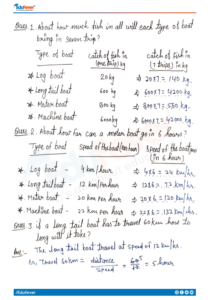 Ques 1. About how much fish in all will each type of boat
bring in seven trip?
Type of boat Catch of fish in (one trip) kg Catch of fish in (7 trips) in kg
* Log boat 20kg 20x7 = 140 kg.
* Long tail boat 600 kg 600x7 = 4200 kg.
* Motor boat 800 kg
* Machine boat 6000kg 6000x7 = 42000 kg.
Ques 2. About how far can a boat go in 6 hours?
Type of boat Speed of the boat (per hour) Speed of the boat (in 6 hours)
* Log boat - 4 km/hour 4x6 = 24 km/hr.
* Long tail boat - 12 km/per hour 12x6 = 72 km/hr.
* Motor boat - 20 km per hour 20x6 = 120 km/hr.
* Machine boat - 22 km per hour 22x6 = 132 km/hr.
Ques 3 if a long tail boat has to travel 60 km how
long will it take?
Ans:- The long tail boat travel at speed of 12 km/hr.
travel 60km = distance / speed = 60 / 12 = 5 hour